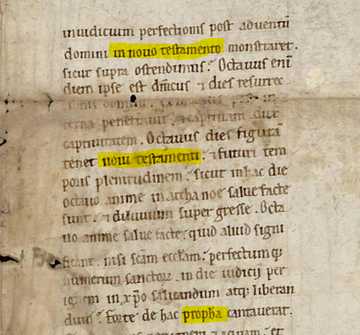 in iudicium perfectionis post adventū
domini in novo testamento monstraret.
sicut supra ostendimus. Octavus eni
diem ipse est dn̄icus & dies resurrec
domini
penetravit captivam dux
captivitatem. Octavus dies figurā
tenet novi testamenti. & futuri tem
poris plenitudinem. sicut in hac die
octavo anime in archa noe salve facte
sunt. & diluvium super gresse. Octa
vo anime salve facte. quid aliud signi
nisi scām eccłam. perfectum q;
numerum sanctorū. in die iudicii per
ignem in xp̄o salvandum atq; liberan
dum. Forte de hac propha cantaverat.
& aquam. et